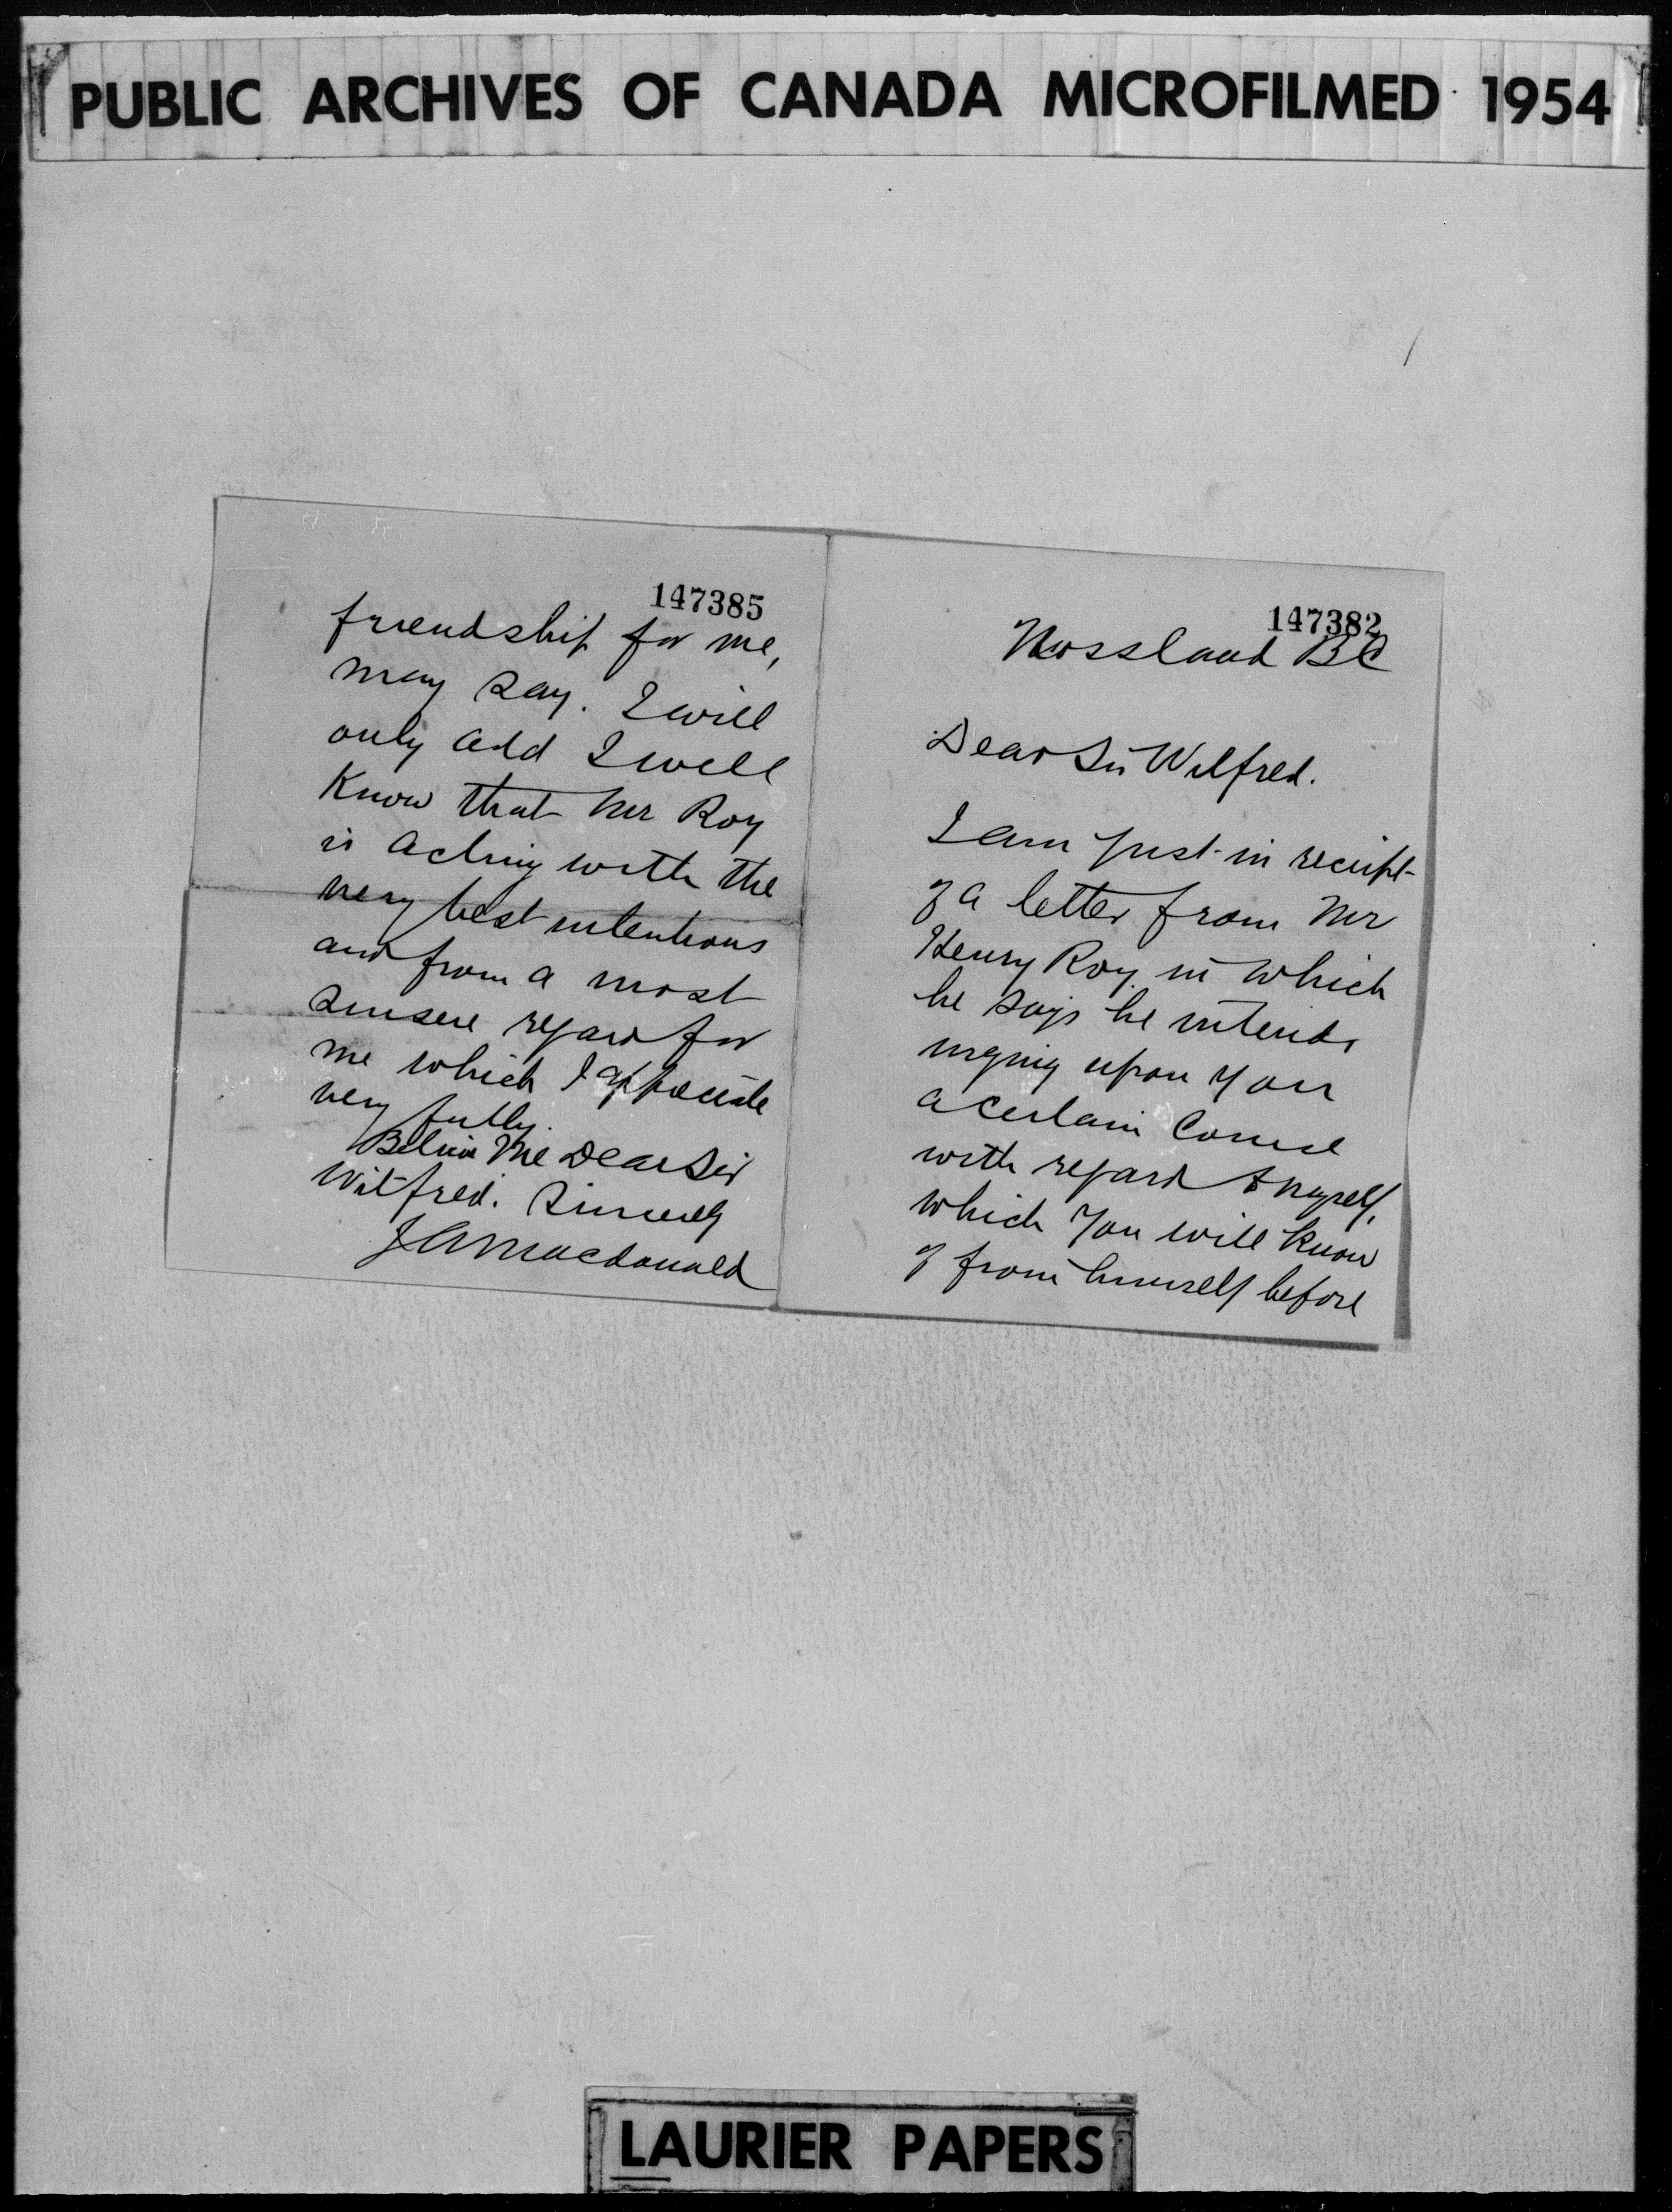 PUBLIC ARCHIVES OF CANADA MICROFILMED 1954
147385
friendship for me,
may say. I will
only add I well
know that Mr Roy
is acting with the
very best intentions
and from a most
sinsere regard for
me which I appreciate
very fully.
Believe Me Dear Sir
Wilfred. Sincerely
J A Macdonald
147382
Rossland BC
Dear Sir Wilfred.
I am just in receipt
of a letter from Mr
Henry Roy in which
he says he intends
urging upon you
a certain course
with regard to myself,
which you will know
of from himself before
LAURIER PAPERS